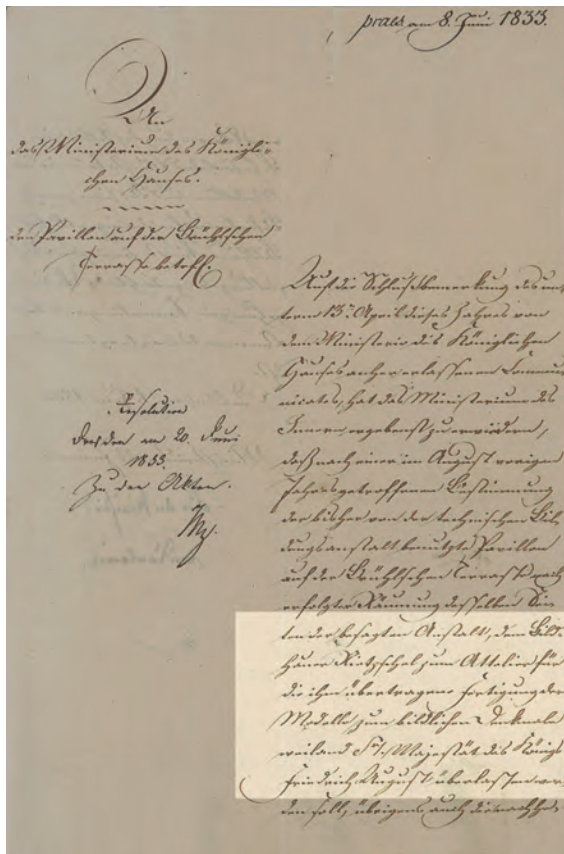 praes. am 8. Juni 1833.
An
das Ministerium des Königli-
chen Hauses.
den Pavillon auf der Brühlschen
Terrasse betrffl.
Auf die Schlußbemerkung des un-
term 13. April dieses Jahres von
dem Ministerio des Königlichen
Hauses anher erlassenen Commu-
nicates, hat das Ministerium des
Innern ergebenst zu erwiedern,
daß nach einer im August vorigen
Jahres getroffenen Bestimmung
der bisher von der technischen Bil-
dungsanstalt benutzte Pavillon
auf der Brühlschen Terrasse nach
erfolgter Räumung desselben Sei-
ten der besagten Anstalt, dem Bild-
hauer Rietzschel zum Attelier für
die ihm übertragene Fertigung der
Modelle zum bildlichen Denkmale
weiland Sr. Majestät des Königs
Friedrich August überlassen wer-
den soll, übrigens auch
Resolution
Dresden am 20. Juni
1833.
Zu den Akten.